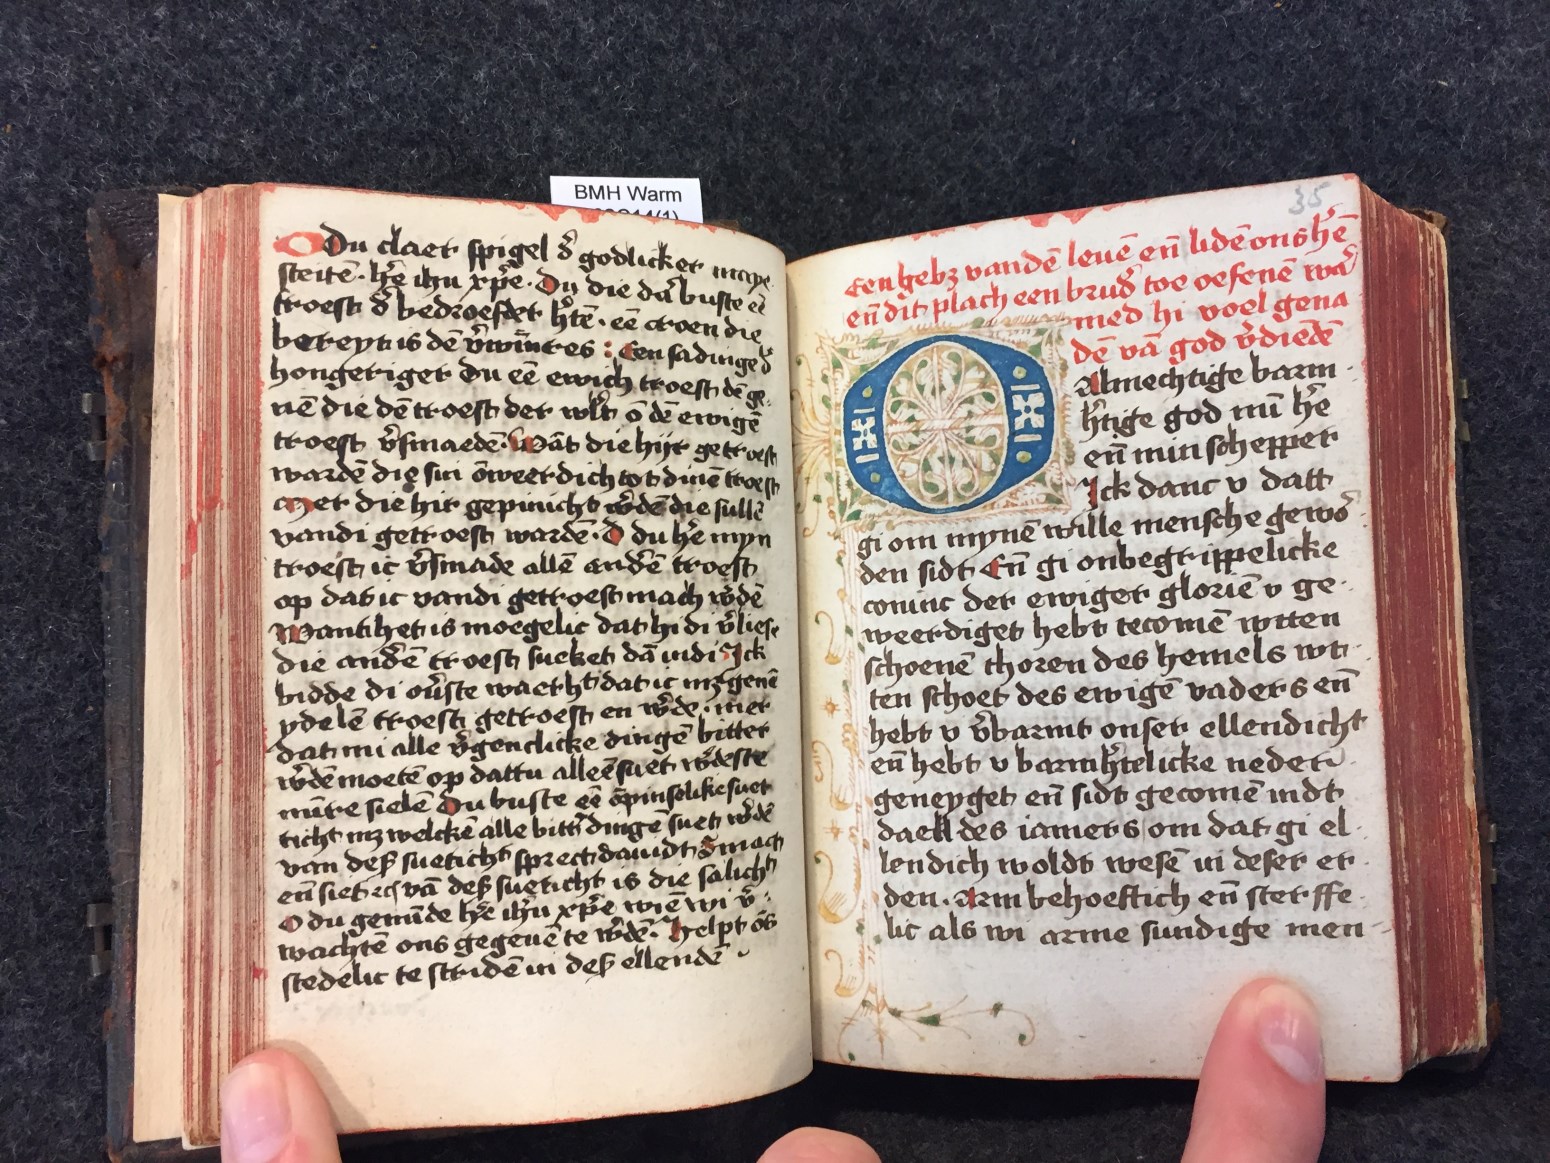 BMH Warm
O Du claer spigel d̕ godlicker maye
steitē · h̕e ihu xpē · Du die dā buste eē
troest d̕ bedroefdet h̕tē · eē croen die
bereyt is dē v̕wīnres : Een sadinge d̕
hongeriger Du eē ewich troest dē ge-
nē die dē troest der w̕lt ō dē ewigē
troest v̕smaedē · Wāt die hijr getroest
wardē die sin ōweerdich tot dinē troest
Mer die hir gepinicht w̕dē die sullē
vandi getroest wardē · O du h̕e myn
troest ic v̕smade allē and̕ē troest
op dat ic vandi getroest mach w̕dē
Want het is moegelic dat hi di v̕liese
die and̕ē troest sueket dā indi Ick
bidde di ov̕ste waerh̕t dat ic mz genē
ydelē troest getroest en w̕de · mer
dat mi alle v̕genclicke dingē bitter
w̕dē moetē op dattu alleē suet w̕deste
mīre sielē Du buste eē suet
ticht mz welckē alle bitt̕ dingē suet w̕dē
van des̕ sueticht sprect dauidt Smact
eñ siet vā des̕ sueticht is die salicht
O du gemīde h̕e ihu xpē wiē wi v̕-
wachtē ons gegeuē te w̕dē · Helpt ōs
stedelic te stridē in des̕ ellendē
35
Een gebz vandē leuē eñ lidē ons h̕ē
eñ dit plach een brud̕ toe oefenē wa̕
med hi voel gena
dē vā god v̕diedē
O Almechtige barm-
h̕tige god mī h̕e
eñ min schepper
Ick danc v datt
gi om mynē wille mensche gewo̕
den sidt Eñ gi onbegrippelicke
coninc der ewiger gloriē v ge-
weerdiget hebt tecomē wtten
schoenē choren des hemels wt-
ten schoet des ewigē vaders eñ
hebt v v̕barmt onser ellendicht
eñ hebt v barmh̕telicke neder-
geneyget eñ sidt gecomē indt
daell des iamers om dat gi el-
lendich woldt wesē in deser er-
den · Arm behoeftich eñ sterffe-
lic als wi arme sundige men-